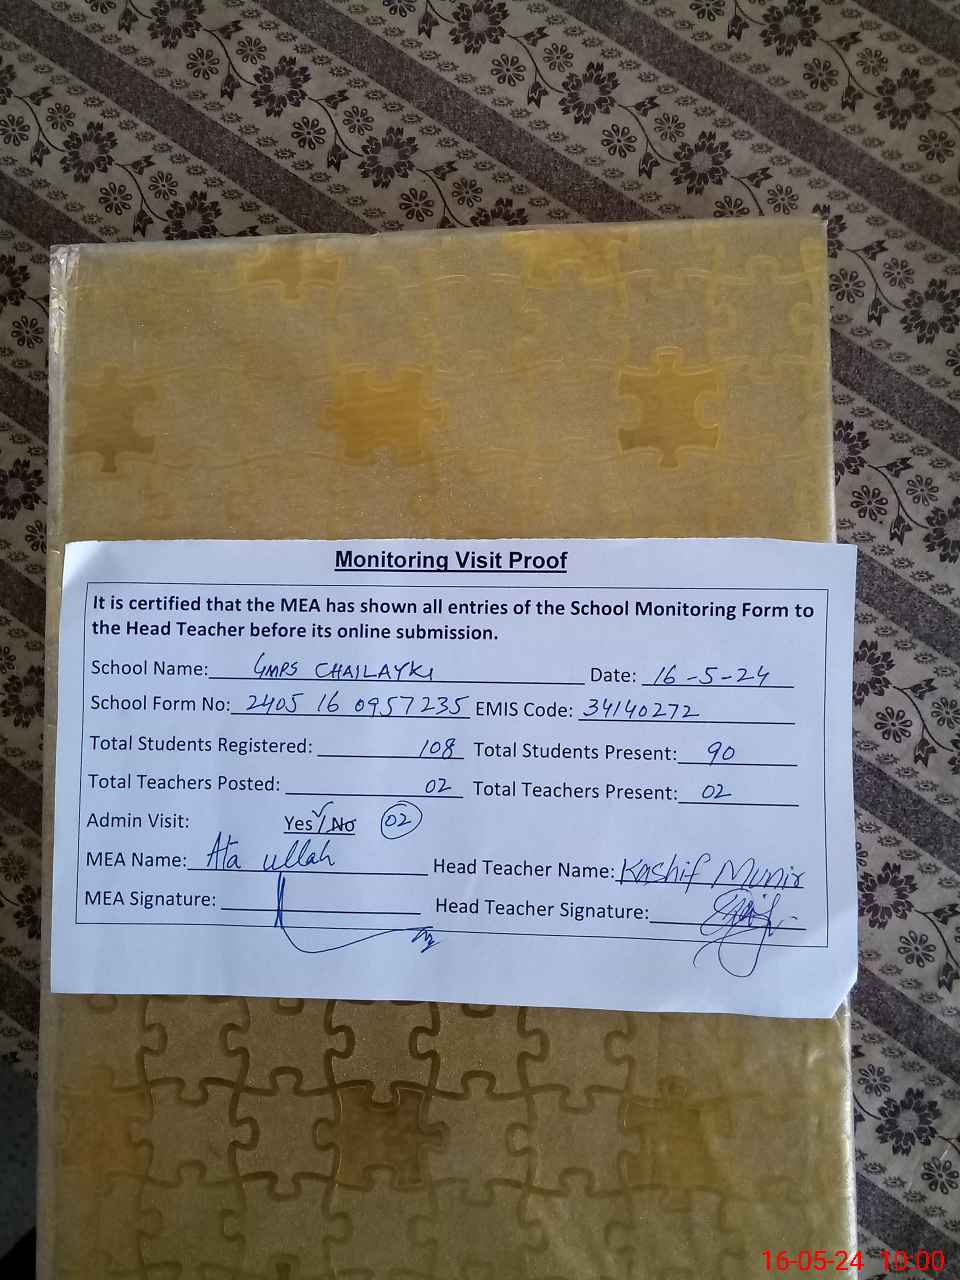 Monitoring Visit Proof
It is certified that the MEA has shown all entries of the School Monitoring Form to
the Head Teacher before its online submission.
School Name: GMPS CHAILAYKI Date: 16-5-24
School Form No: 2405 16 0957235 EMIS Code: 34140272
Total Students Registered: 108 Total Students Present: 90
Total Teachers Posted: 02 Total Teachers Present: 02
Admin Visit: Yes/No 02
MEA Name: Ata ullah Head Teacher Name: Kashif Munir
MEA Signature: Head Teacher Signature:
16-05-24 10:00